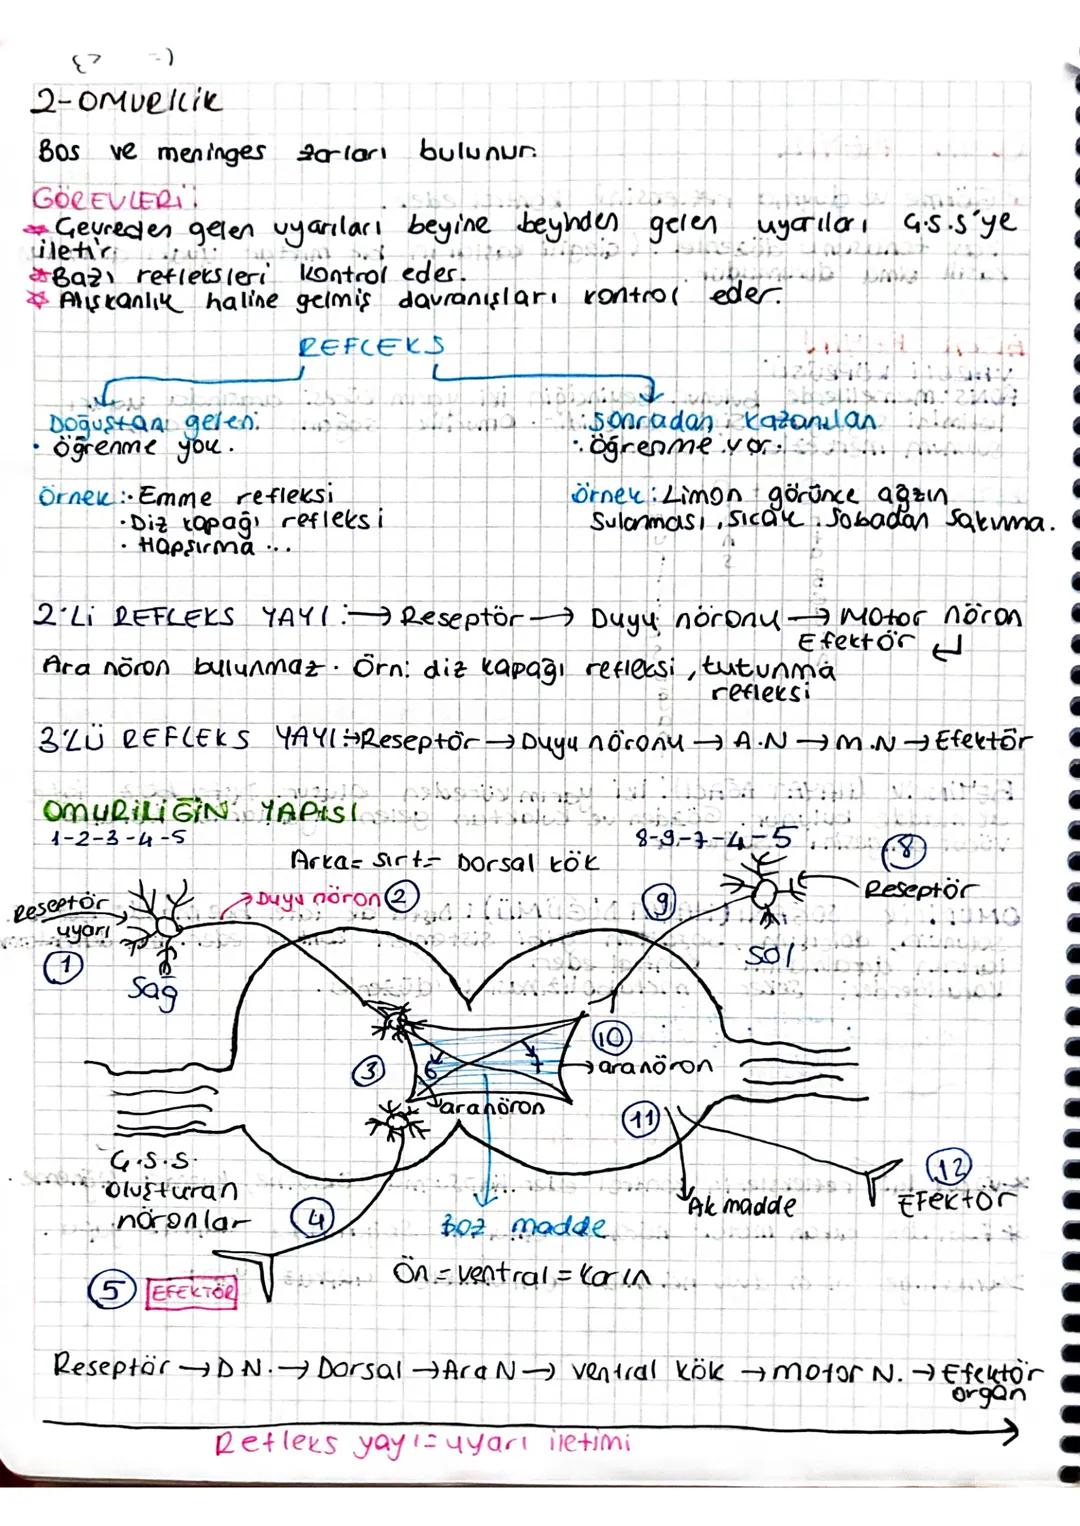 2-OMURİLİK
Bos ve meninges zarları bulunur.
GÖREVLERİ:
* Çevreden gelen uyarıları beyine beyinden gelen uyarıları Ç.S.S'ye
iletir.
* Bazı refleksleri kontrol eder.
* Alışkanlık haline gelmiş davranışları kontrol eder.
REFLEKS
Doğuştan gelen:
· öğrenme yok.
Örnek: · Emme refleksi
· Diz kapağı refleksi
· Hapşırma ...
Sonradan kazanılan
· öğrenme var.
örnek: Limon görünce ağzın
sulanması, sıcak sobadan sakınma.
2'Lİ REFLEKS YAYI: → Reseptör → Duyu nöronu → Motor nöron
Efektör ↵
Ara nöron bulunmaz. Örn: diz kapağı refleksi, tutunma
refleksi
3'LÜ REFLEKS YAYI:→Reseptör → Duyu nöronu → A.N → M.N → Efektör
OMURİLİĞİN YAPISI
1-2-3-4-5
8-9-7-4-5
Arka= sırt= Dorsal kök
8
Reseptör
Reseptör
uyarı
1
Duyu nöron 2
9
Sağ
Sol
3
6
7
10
aranöron
aranöron
11
Ç.S.S.
oluşturan
nöronlar
4
Boz madde
Ak madde
12
Efektör
Ön = ventral = karın
5 EFEKTÖR
Reseptör → D.N. → Dorsal → Ara N → ventral kök → motor N. → Efektör
organ
Refleks yayı = uyarı iletimi